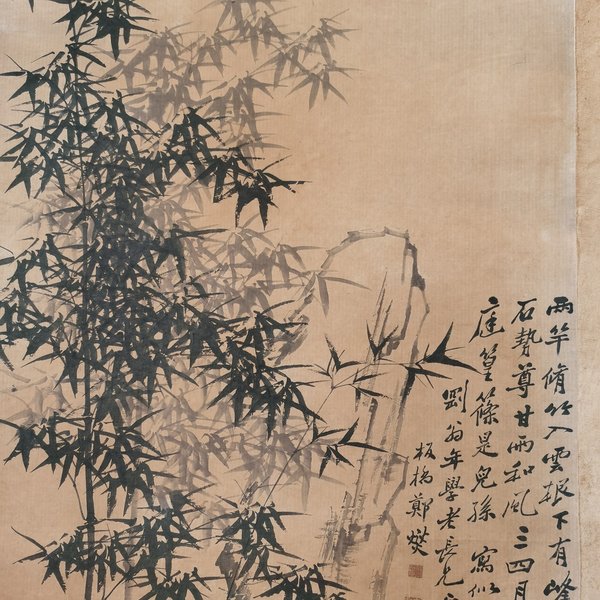 兩竿脩竹入雲根下有峰
石勢尊甘雨和風三四月
庭篁篠是兒孫 寫似
劉翁年學老長兄
板橋鄭燮